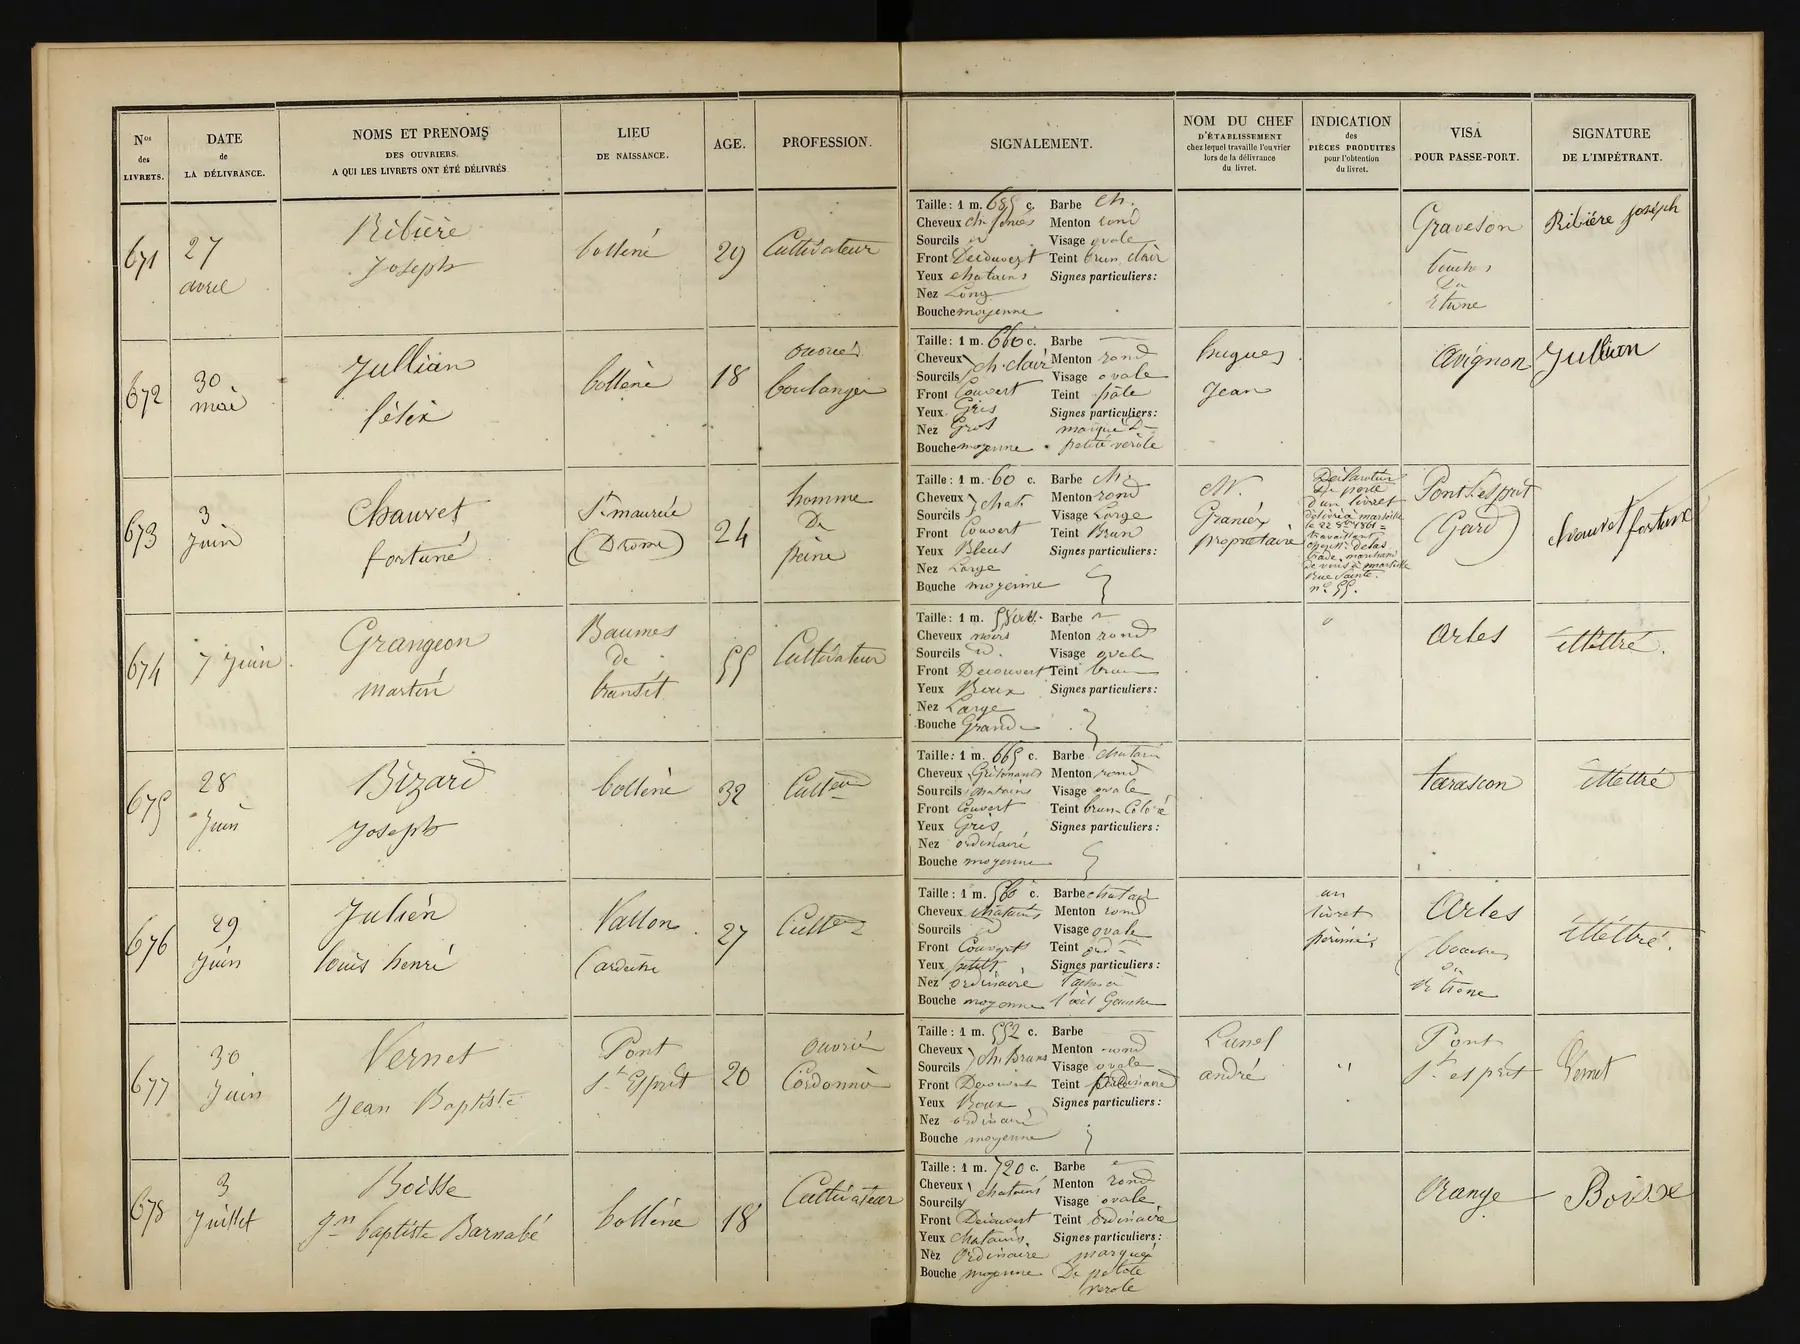 Nos des LIVRETS.
DATE de LA DÉLIVRANCE.
NOMS ET PRENOMS DES OUVRIERS. A QUI LES LIVRETS ONT ÉTÉ DÉLIVRÉS
LIEU DE NAISSANCE.
AGE.
PROFESSION.
SIGNALEMENT.
NOM DU CHEF D'ÉTABLISSEMENT chez lequel travaille l'ouvrier lors de la délivrance du livret.
INDICATION des PIÈCES PRODUITES pour l'obtention du livret.
VISA POUR PASSE-PORT.
SIGNATURE DE L'IMPÉTRANT.
671
27
avril
Ribière
Joseph
bollène
29
Cultivateur
Taille : 1 m. 685 c. Barbe ch.
Cheveux ch. foncés Menton rond
Sourcils id Visage ovale
Front Découvert Teint brun clair
Yeux chatains Signes particuliers :
Nez Long
Bouche moyenne
Graveson
bouches
Du
Rhone
Ribiére joseph
672
30
mai
Jullian
félix
bollène
18
ouvrier
boulanger
Taille : 1 m. 660 c. Barbe
Cheveux ch. clair Menton rond
Sourcils Visage ovale
Front Couvert Teint pâle
Yeux Gris Signes particuliers :
Nez Gros marqué De
Bouche moyenne petite vérole
hugues
Jean
Avignon
Jullian
673
3
Juin
Chauvet
fortuné
St maurice
(Drome)
24
homme
De
peine
Taille : 1 m. 60 c. Barbe ch.
Cheveux chat. Menton rond
Sourcils Visage Large
Front Couvert Teint Brun
Yeux Bleus Signes particuliers :
Nez Large
Bouche moyenne
Mr.
Granier
propriétaire
Déclaration
De perte
d'un livret
délivré à marseille
le 22 8bre 1861 =
travaillant
marchand
de vins à marseille
Rue Sainte.
n° 55.
Pont St esprit
(Gard)
chauvet fortuné
674
7 Juin
Grangeon
martin
Baumes
de
transit
55
Cultivateur
Taille : 1 m. Barbe
Cheveux noirs Menton rond
Sourcils id. Visage ovale
Front Découvert Teint brun
Yeux Roux Signes particuliers :
Nez Large
Bouche Grande
Arles
illettré.
675
28
Juin
Bizard
Joseph
bollène
32
Culteur
Taille : 1 m. 665 c. Barbe chatain
Cheveux Grisonants Menton rond
Sourcils chatains Visage ovale
Front Couvert Teint brun Coloré
Yeux Gris Signes particuliers :
Nez ordinaire
Bouche moyenne
tarascon
illettré
676
29
Juin
Julien
louis henri
Vallon
(ardèche
27
Culteur
Taille : 1 m. 560 c. Barbe chatain
Cheveux chatains Menton rond
Sourcils id Visage ovale
Front Couvert Teint ord
Yeux petits Signes particuliers :
Nez ordinaire
Bouche moyenne l'œil Gauche
un
livret
périmé
Arles
(bouches
Du
Rhône
illéttré.
677
30
Juin
Vernet
Jean Baptiste
Pont
St Esprit
20
ouvrier
Cordonnier
Taille : 1 m. 552 c. Barbe
Cheveux ch. Bruns Menton rond
Sourcils Visage ovale
Front Découvert Teint ordinaire
Yeux Roux Signes particuliers :
Nez ordinaire
Bouche moyenne
Lunel
andré
"
Pont
St esprit
Vernet
678
3
Juillet
Boisse
Jn baptiste Barnabé
bollène
18
Cultivateur
Taille : 1 m. 720 c. Barbe
Cheveux chatains Menton rond
Sourcils Visage ovale
Front Découvert Teint ordinaire
Yeux chatains Signes particuliers :
Nez Ordinaire marqué
Bouche moyenne De petite
verole
Orange
Boisse